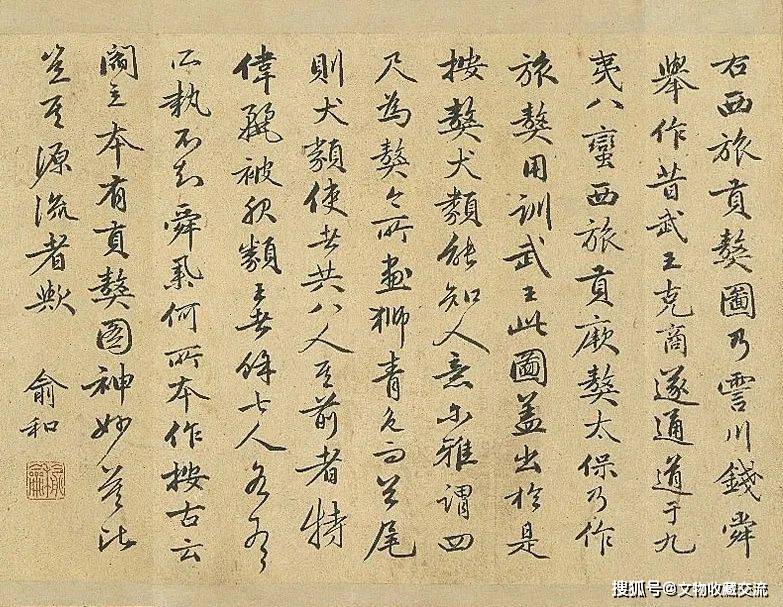 右西旅貢獒圖乃霅川錢舜
舉作昔武王克商遂通道于九
夷八蠻西旅貢厥獒太保乃作
旅獒用訓武王此圖蓋出於是
按獒犬類能知人意尔雅謂四
尺為獒今所畫獅青色而尾
則犬類使者共八人其前者特
偉麗被服類王者餘七人各有
所執不知舜舉何所本作按古云
閻立本有貢獒图神妙莫比
豈其源流者歟 俞和
搜狐号@文物收藏交流